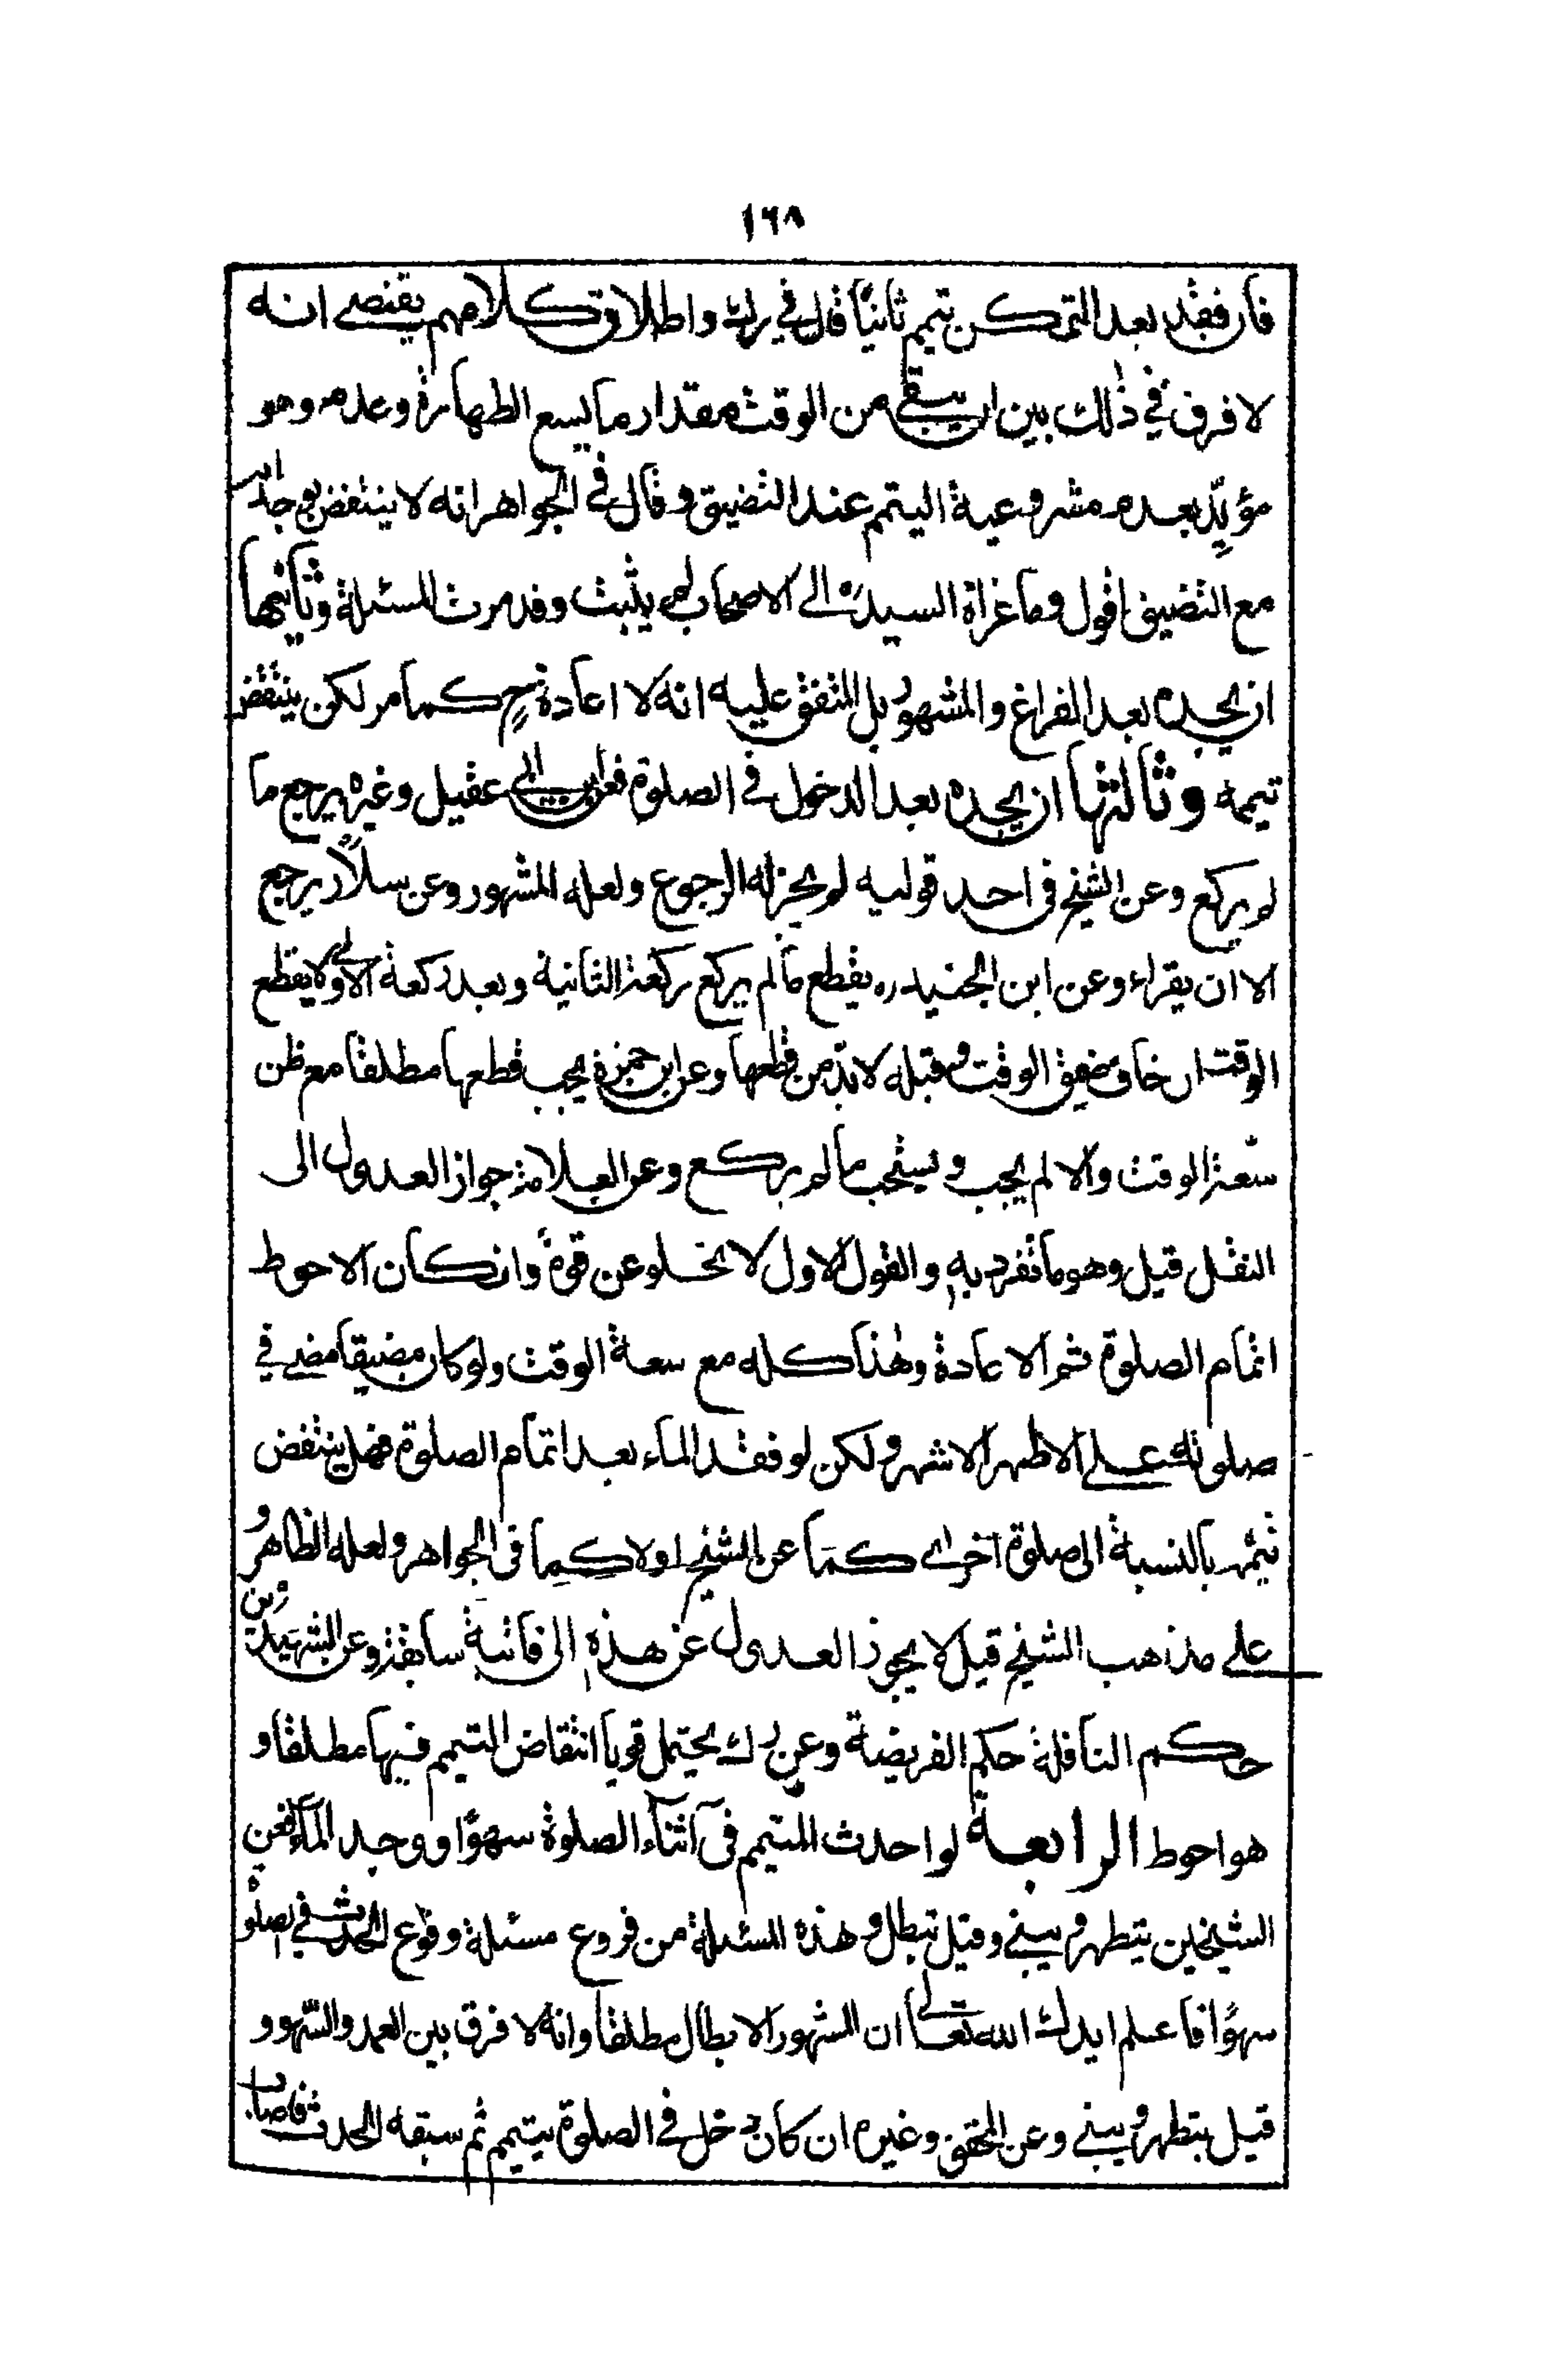 ١٦٨
فان فقد بعد التمكن تيمم ثانيًا قال في رك واطلاق كلامهم يقتضي انه
لا فرق في ذلك بين ان يبقى من الوقت مقدار ما يسع الطهارة وعدمه وهو
مؤيِّد بعدم مشروعية التيمم عند التضيق وقال في الجواهر انه لا ينتقض بوجدانه
مع التضيق اقول وما عزاه السيد ره الى الاصحاب لم يثبت وقد مرت المسئلة وثانيها
ان يجده بعد الفراغ والمشهور بل المتفق عليه انه لا اعادة ح كما مر لكن ينتقض
تيممه وثالثها ان يجده بعد الدخول في الصلوة فعن ابن ابي عقيل وغيره يرجع ما
لم يركع وعن الشيخ في احد قوليه لم يجز له الرجوع ولعله المشهور وعن سلّار يرجع
الا ان يقراء وعن ابن الجنيد ره يقطع ما لم يركع ركعة الثانية وبعد ركعة الاولى لا يقطع
الوقت ان خاف ضيق الوقت وقبله لا بدّ من قطعها وعن ابن حمزة يجب قطعها مطلقا مع ظن
سعة الوقت والا لم يجب ويستحب ما لم يركع وعن العلامة جواز العدول الى
النفل قيل وهو ما تفرد به والقول الاول لا يخلو عن قوة وان كان الاحوط
اتمام الصلوة ثم الاعادة وهذا كله مع سعة الوقت ولو كان مضيقا مضى في
صلوته على الاظهر الاشهر ولكن لو فقد الماء بعد اتمام الصلوة فهل ينتقض
تيممه بالنسبة الى صلوة اخرى كما عن الشيخ او لا كما في الجواهر ولعله الظاهر و
على مذهب الشيخ قيل لا يجوز العدول عن هذه الى فائتة سابقة وعن الشهيدين
حكم النافلة حكم الفريضة وعن رك يحتمل قويا انتقاض التيمم فيها مطلقا و
هو احوط الرابعة لو احدث المتيمم في اثناء الصلوة سهوًا ووجد الماء فعن
الشيخين يتطهر ويبني وقيل تبطل وهذه المسئلة من فروع مسئلة وقوع الحدث في الصلوة
سهوًا فاعلم ايدك الله تعالى ان المشهور الابطال مطلقا وانه لا فرق بين العمد والسّهو و
قيل يتطهر ويبني وعن المحقق وغيره ان كان دخل في الصلوة بتيمم ثم سبقه الحدث فاصاب